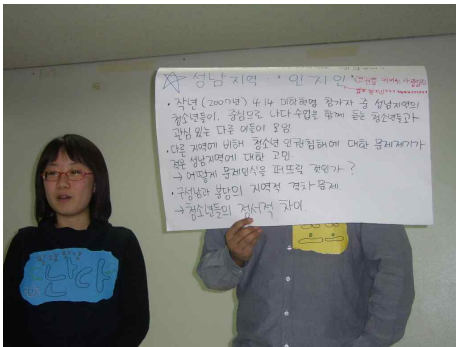 ☆ 성남지역 '인지인'
• 작년(2007년) 4.14 미친학교 참가자 중 성남지역의
청소년들이, 중심으로 나다수업을 함께 듣는 청소년들과
관심있는 다른 이들이 모임
• 다른 지역에 비해 청소년 인권침해에 대한 문제제기가
적은 성남지역에 대한 고민
→ 어떻게 문제인식을 퍼뜨릴 것인가?
• 구성남과 분당의 지역적 격차 문제
→ 청소년들의 정서적 차이
난다